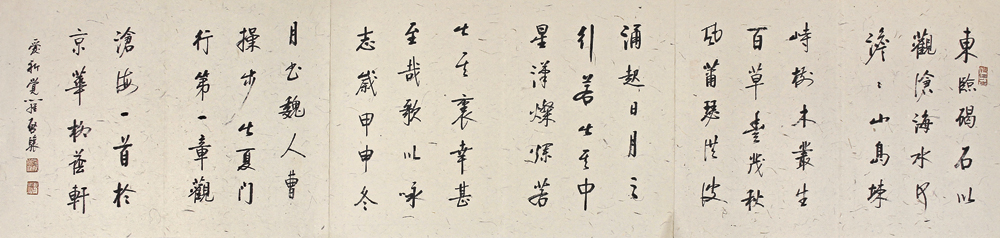 東臨碣石以
觀滄海水何
澹〻山島竦
峙樹木叢生
百草豊茂秋
風蕭瑟洪波
涌起日月之
行若出其中
星漢燦爛若
出其裏幸甚
至哉歌以咏
志歲甲申冬
月书魏人曹
操步出夏门
行第一章觀
滄海一首於
京華柳蔭軒
愛新覺羅啓